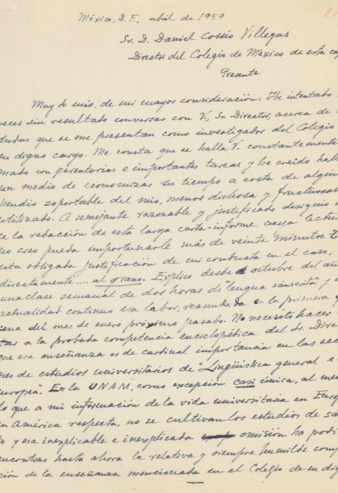 México, D.F., abril de 1959
Sr. D. Daniel Cossío Villegas
Director del Colegio de México de esta cap
Presente
Muy Sr. mío, de mi mayor consideración: He intentado
veces sin resultado conversar con V., Sr. Director, acerca de
dudas que se me presentan como investigador del Colegio
su digno cargo. Me consta que se halla V. constantemente
mado con perentorias e importantes tareas y he creído hall
un medio de economizar su tiempo a costa de algún
pendio soportable del mío, menos dichosa y fructuosa
cotizado. A semejante razonable y justificado designio
ce la redacción de esta larga carta-informe cuya lectu
no creo pueda importunarle más de veinte minutos.
esta obligada justificación de mi conducta en el caso,
directamente.... al grano. Explico desde octubre del añ
una clase semanal de dos horas de lengua sánscrita y
actualidad continuo esa labor, reanudada en la primera
cena del mes de enero próximo pasado. No necesito hacer
tas a la probada competencia enciclopédica del Sr. Direc
que esa enseñanza es de cardinal importancia en las sec
nes de estudios universitarios de Lingüística general e
europea. En la UNAM, como excepción casi única, al me
lo que a mi información de la vida universitaria en Euro
y América respecta, no se cultivan los estudios de sán
to y esa inexplicable e inexplicada omisión ha podi
encontrar hasta ahora la relativa y siempre humilde comp
ción de la enseñanza mencionada en el Colegio de su dig